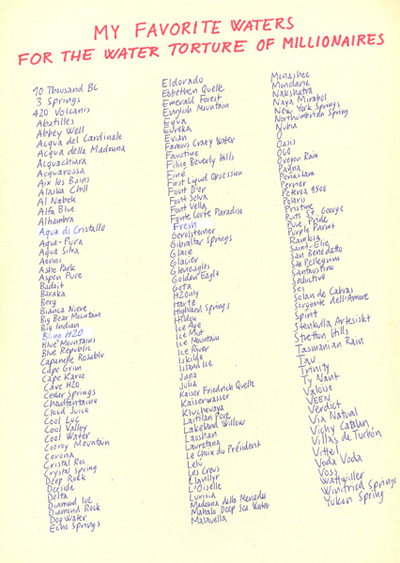 MY FAVORITE WATERS
FOR THE WATER TORTURE OF MILLIONAIRES
10 Thousand BC
3 Springs
420 Volcanic
Abatilles
Abbey Well
Acqua del Cardinale
Acqua della Madonna
Acquachiara
Acquarossa
Aix les Bains
Alaska Chill
Al Nabek
Alfa Blue
Alhambra
Aqua di Cristallo
Aqua-Pura
Aqua Silva
Ashe Park
Aspen Pure
Badoit
Baraka
Berg
Bianca Nieve
Big Bear Mountain
Big Indian
Bling H2O
Blue Mountains
Blue Republic
Capanelle
Cape Grim
Cape Karoo
Cave H2O
Cedar Springs
Chaudfontaine
Cloud Juice
Cool
Cool Valley
Cool Water
Cooroy Mountain
Corona
Cristal Roc
Crystal Spring
Deep Rock
Deeside
Delta
Diamond Ice
Diamond Rock
Dog Water
Echo Springs
Eldorado
Ebbethen Quelle
Emerald Forest
English Mountain
Equa
Eureka
Evian
Famous Crazy Water
Faustine
Fillig Beverly Hills
Finé
First Liquid Obsession
Font D'or
Font Selva
Font Vella
Fonte Corte Paradiso
Fresh
Gerolsteiner
Gibraltar Springs
Glace
Glacier
Gleneagles
Golden Eagle
Gota
H2Only
Harte
Highland Springs
Hildon
Ice Age
Ice Mist
Ice Mountain
Ice River
Iskilde
Island Ice
Jana
Julia
Kaiser Friedrich Quelle
Kaiserwasser
Kluchevaya
Laitilan
Lakeland Willow
Laoshan
Lauretana
Le Choix du Président
Lelú
Les Creus
Llanllyr
L'Oiselle
Lurisia
Madonna della Mercede
Mahalo Deep Sea Water
Malavella
Monashee
Mondariz
Nakshatra
Naya Mirabel
New York Springs
Northumbrian Spring
Nubia
O
Oasis
OGO
Oregon Rain
Padna
Penaclara
Perrier
Peteroa 9500
Polaris
Pristine
Puits St. George
Pure Pride
Purple Parrot
Ramlösa
Saint-Elie
San Benedetto
San Pellegrino
Santaustino
Seductive
Sei
Solan de Cabras
Sorgente dell'Amore
Spirit
Stenkulla Artesiskt
Stretton Hills
Tasmanian Rain
Tau
Trinity
Ty Nant
Valoise
VEEN
Verdict
Via Natural
Vichy Catalan
Villas de Turbón
Vittel
Voda Voda
Voss
Wattwiller
Winifred Springs
Yukon Spring